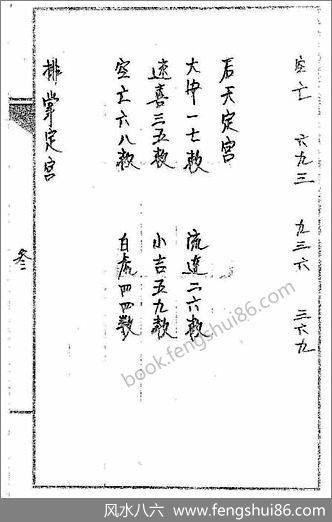 空亡 六九三 九三六 三六九
后天定宫
大安一七数 流连二六数
速喜三五数 小吉五九数
空亡六八数 白虎四四数
排掌定宫
叁
book.fengshui86.com
风水八六 www.fengshui86.com